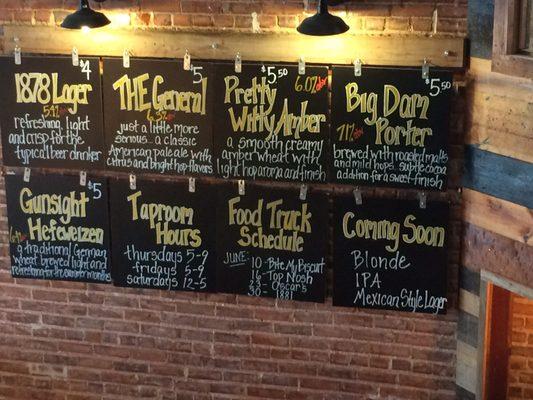 1878 Lager $4
5.4% abv
refreshing, light
and crisp for the
typical beer drinker
THE General 5
just a little more
serious... a classic
American pale ale with
citrus and bright flavors
Pretty $5.50
Witty Amber 6.0% abv
a smooth creamy
amber wheat with
light hop aroma and finish
Big Dam $5
Porter
7.1% abv
brewed with roasted malts
and mild hops. subtle oak
addition for a sweet finish
Gunsight $5
Hefeweizen
a traditional German
wheat brewed light and
refreshing for the summer months
Taproom
Hours
thursdays 5-9
fridays 5-9
saturdays 12-5
Food Truck
Schedule
JUNE: 10 - Bite My Biscuit
16 - Top Nosh
23 - Oscar's
30 - 1881
Coming Soon
Blonde
IPA
Mexican Style Lager